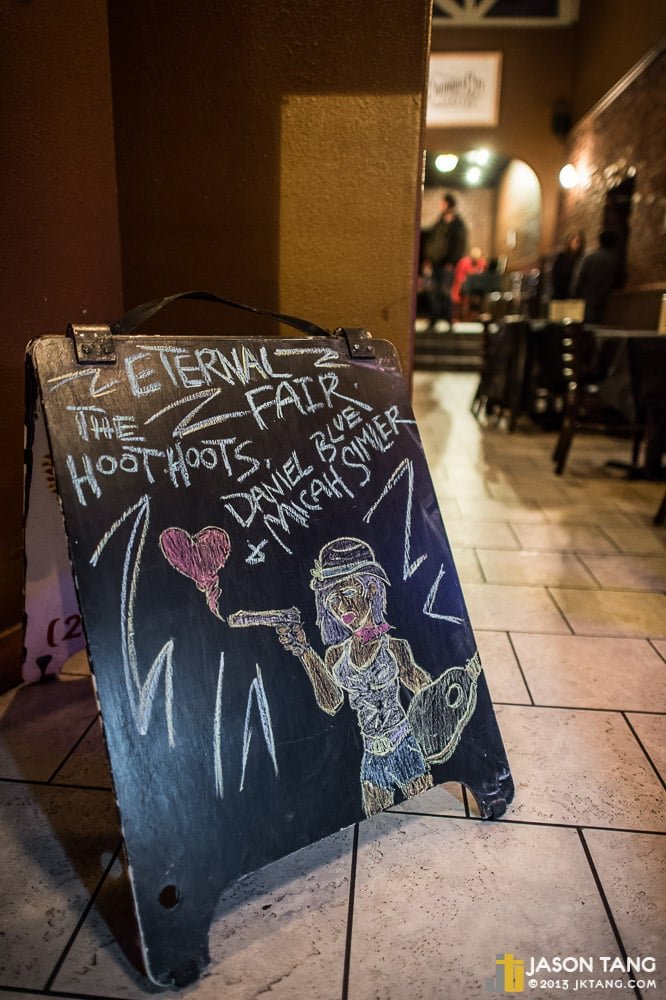 ETERNAL
FAIR.
THE
HOOTHOOTS.
DANIEL BLUE
& MICAH SIMLER
(2
JASON TANG
© 2013 JKTANG.COM